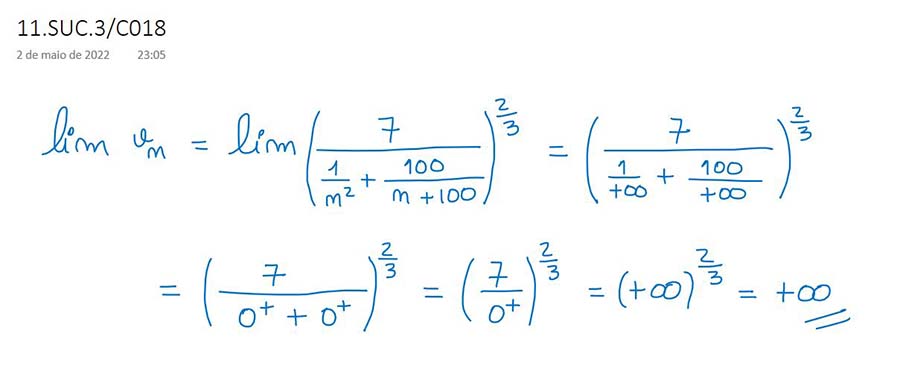 11.SUC.3/C018
2 de maio de 2022 23:05
lim v_n = lim (7 / (1/n² + 100/(n+100)))^(2/3) = (7 / (1/+∞ + 100/+∞))^(2/3)
= (7 / (0⁺ + 0⁺))^(2/3) = (7/0⁺)^(2/3) = (+∞)^(2/3) = +∞